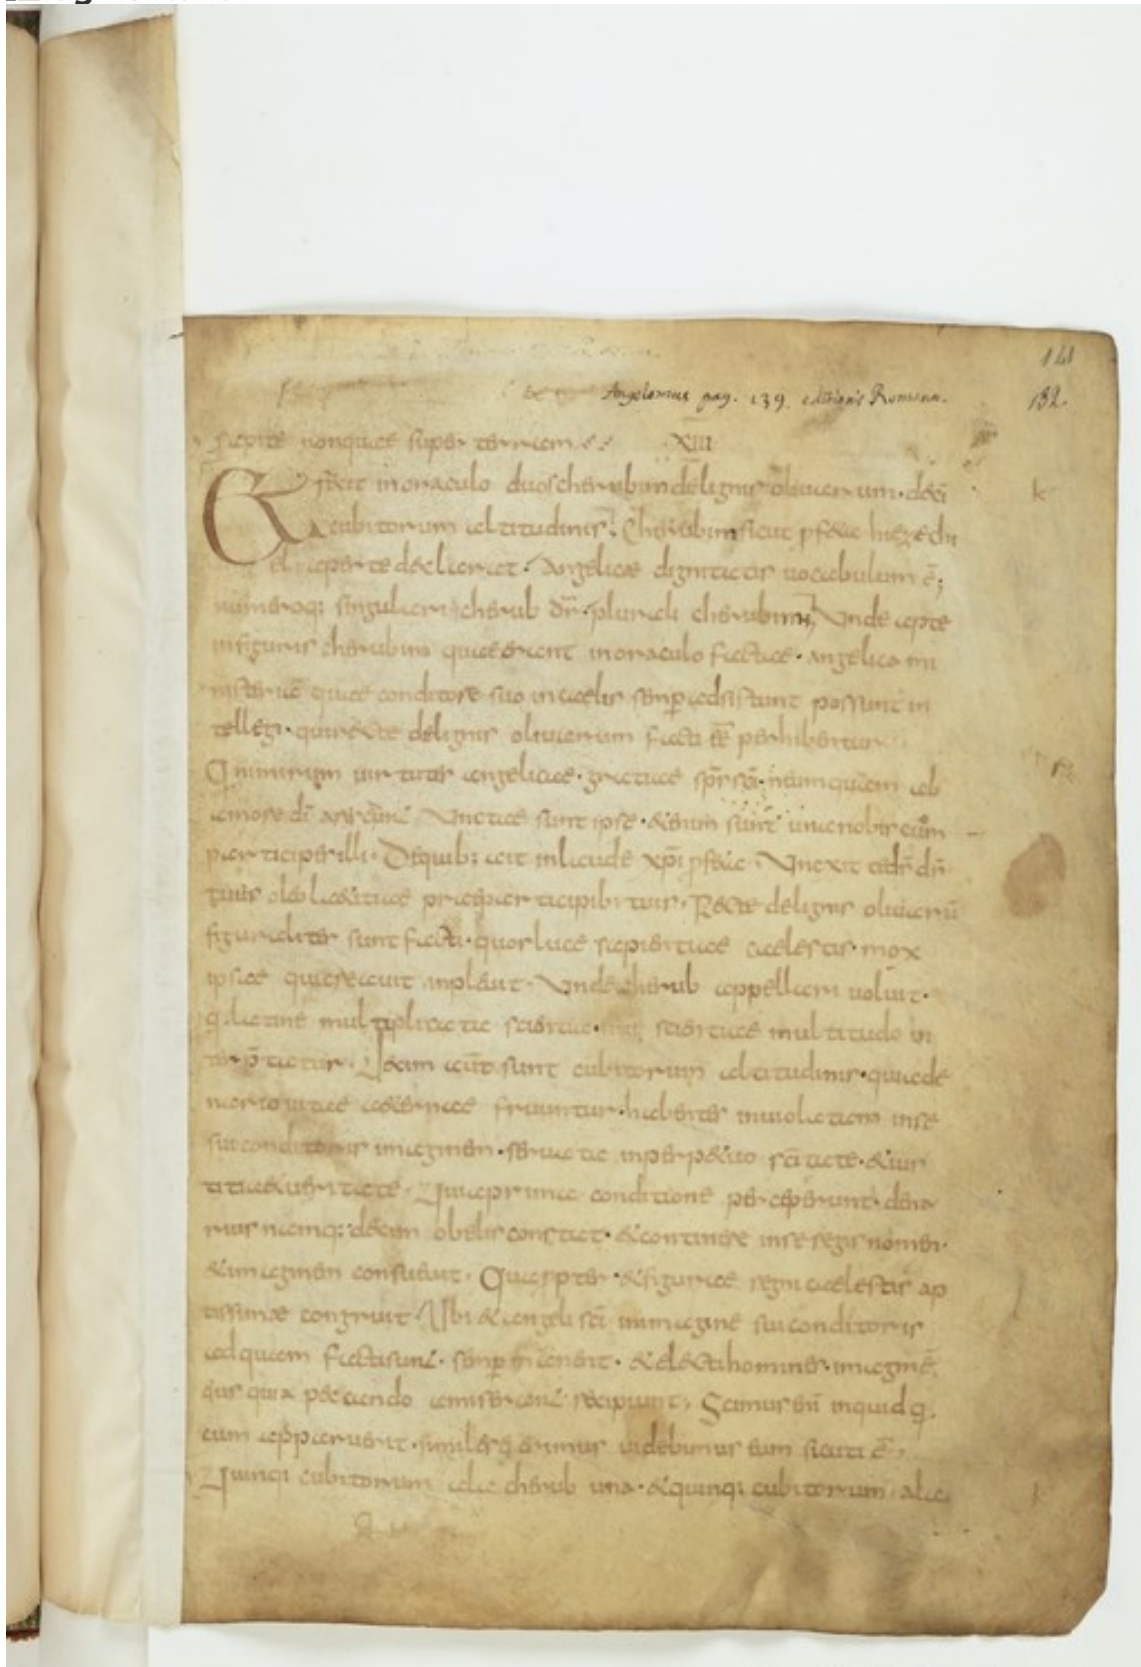 141
Angelomus pag. 139. editionis Romanae.
182.
sapite nonquae super terram XIII
Et fecit in oraculo duos cherubim de lignis olivarum · decē
cubitorum altitudinis. Cherubim sicut p&#102;&eta hiezechi
el aperte declarat · Angelicae dignitatis uocabulum ē;
numeroq; singulari cherub dr̄ · plurali cherubim; Vnde apte
infiguris cherubim quae erant in oraculo factae · angelica mi
nisteria quae conditore suo in caelis semp adsistunt possunt in
tellegi · qui recte delignis oliuarum facti eē perhibentur
Q nimirum uirtutes angelicae · gratiae sp̄s sc̄i · neumquam ab
amore dī · Vnctae sunt ipse · &enim sunt
participes illi · Dequib; ait inlaude xp̄i · Vnexit
tuus oleo laetitiae prae participib; tuis · Recte delignis oliuarū
figuraliter sunt facti · quos luce sapientiae caelestis · mox
ipsae quiae creauit inpleuit · Vnde cherub appellari uoluit ·
q latine multiplicatae scientiae · scientiae multitudo in
terp̄tatur · Decem aut sunt cubitorum altitudinis · quiade
nario uitae aeternae fruuntur · habentes inuiolatam inse
sui conditoris imaginem · seruatae inperpetuo sc̄itate · &ius
titia&ueritate · Quaeprima conditione perceperunt · dena
rius namq; decem obolis constat · &continere inse regis nomen ·
&imaginem consueuit · Quapropter · &figurae regni caelestis ap
tissimae congruit · Vbi & angeli sc̄i inimagine sui conditoris
adquam facti sunt · semp manent · &electi homines · imagine
eius quia peccando amiserant recipiunt; Scimus enī inquid q
cum apparuerit · similes ei erimus uidebimus eum sicuti ē;
Quinq; cubitorum ala cherub una · &quinq; cubitorum · ala